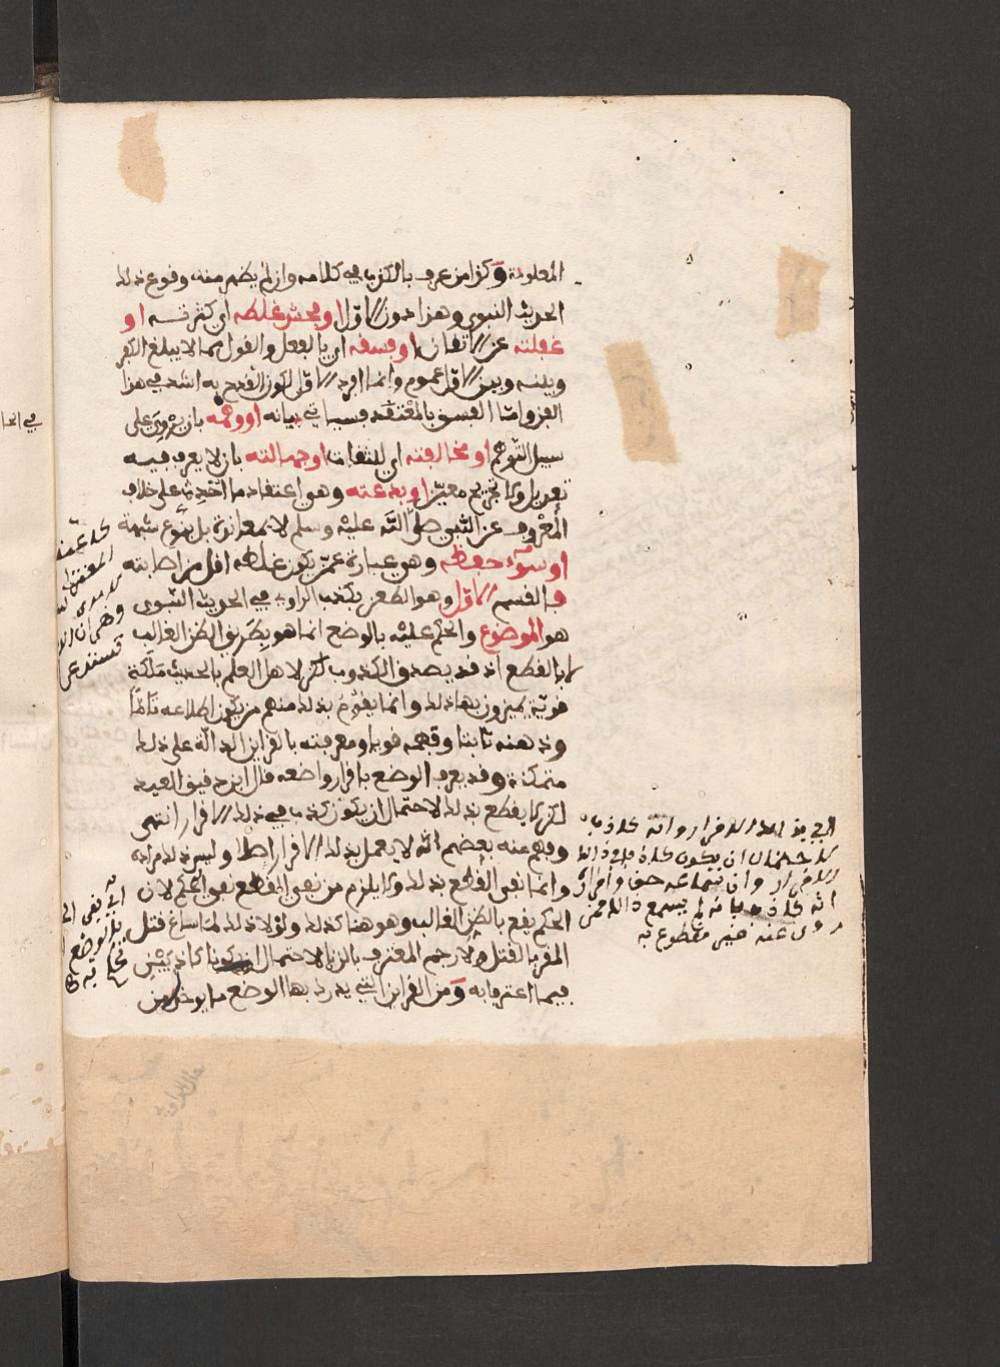 المعلومة وكذا من عرف بالكذب في كلامه وان لم يظهر منه وقوع ذلك
الحديث النبوي وهذا دون الاول او فحش غلطه اي كثرته او
غفلته عن الاتقان او فسقه اي بالفعل والقول مما لا يبلغ الكفر
وبينه وبين الاول عموم وانما افرد الاول لكون القدح به اشد في هذا
الفن واما الفسق بالمعتقد فسياتي بيانه او وهمه بان يروي على
سبيل التوهم او مخالفته اي للثقات او جهالته بان لا يعرف فيه
تعديل ولا تجريح معين او بدعته وهي اعتقاد ما احدث على خلاف
المعروف عن النبي صلى الله عليه وسلم لا بمعاندة بل بنوع شبهة
او سوء حفظه وهي عبارة عمن يكون غلطه اقل من اصابته
فالقسم الاول وهو الطعن بكذب الراوي في الحديث النبوي
هو الموضوع والحكم عليه بالوضع انما هو بطريق الظن الغالب
لا بالقطع اذ قد يصدق الكذوب لكن لاهل العلم بالحديث ملكة
قوية يميزون بها ذلك وانما يقوم بذلك منهم من يكون اطلاعه تاما
وذهنه ثابتا وفهمه قويا ومعرفته بالقراين الدالة على ذلك
متمكنة وقد يعرف الوضع باقرار واضعه قال ابن دقيق العيد
لكن لا يقطع بذلك لاحتمال ان يكون كذب في ذلك الاقرار انتهى
وفهم عنه بعضهم انه لا يعمل بذلك الاقرار اصلا وليس ذلك مراده
وانما نفي القطع بذلك ولا يلزم من نفي القطع نفي الحكم لان
الحكم يقع بالظن الغالب وهو هنا كذلك ولولا ذلك لما ساغ قتل
المقر بالقتل ولا رجم المعترف بالزنا لاحتمال ان يكونا كاذبين
فيما اعترفا به ومن القراين التي يدرك بها الوضع ما يوخذ من
الاقرار وانه كاذب
لاحتمال ان يكون كاذبا في ذلك
انه كاذب بانه لم يسمع ذلك ممن
روى عنه غير مقطوع به